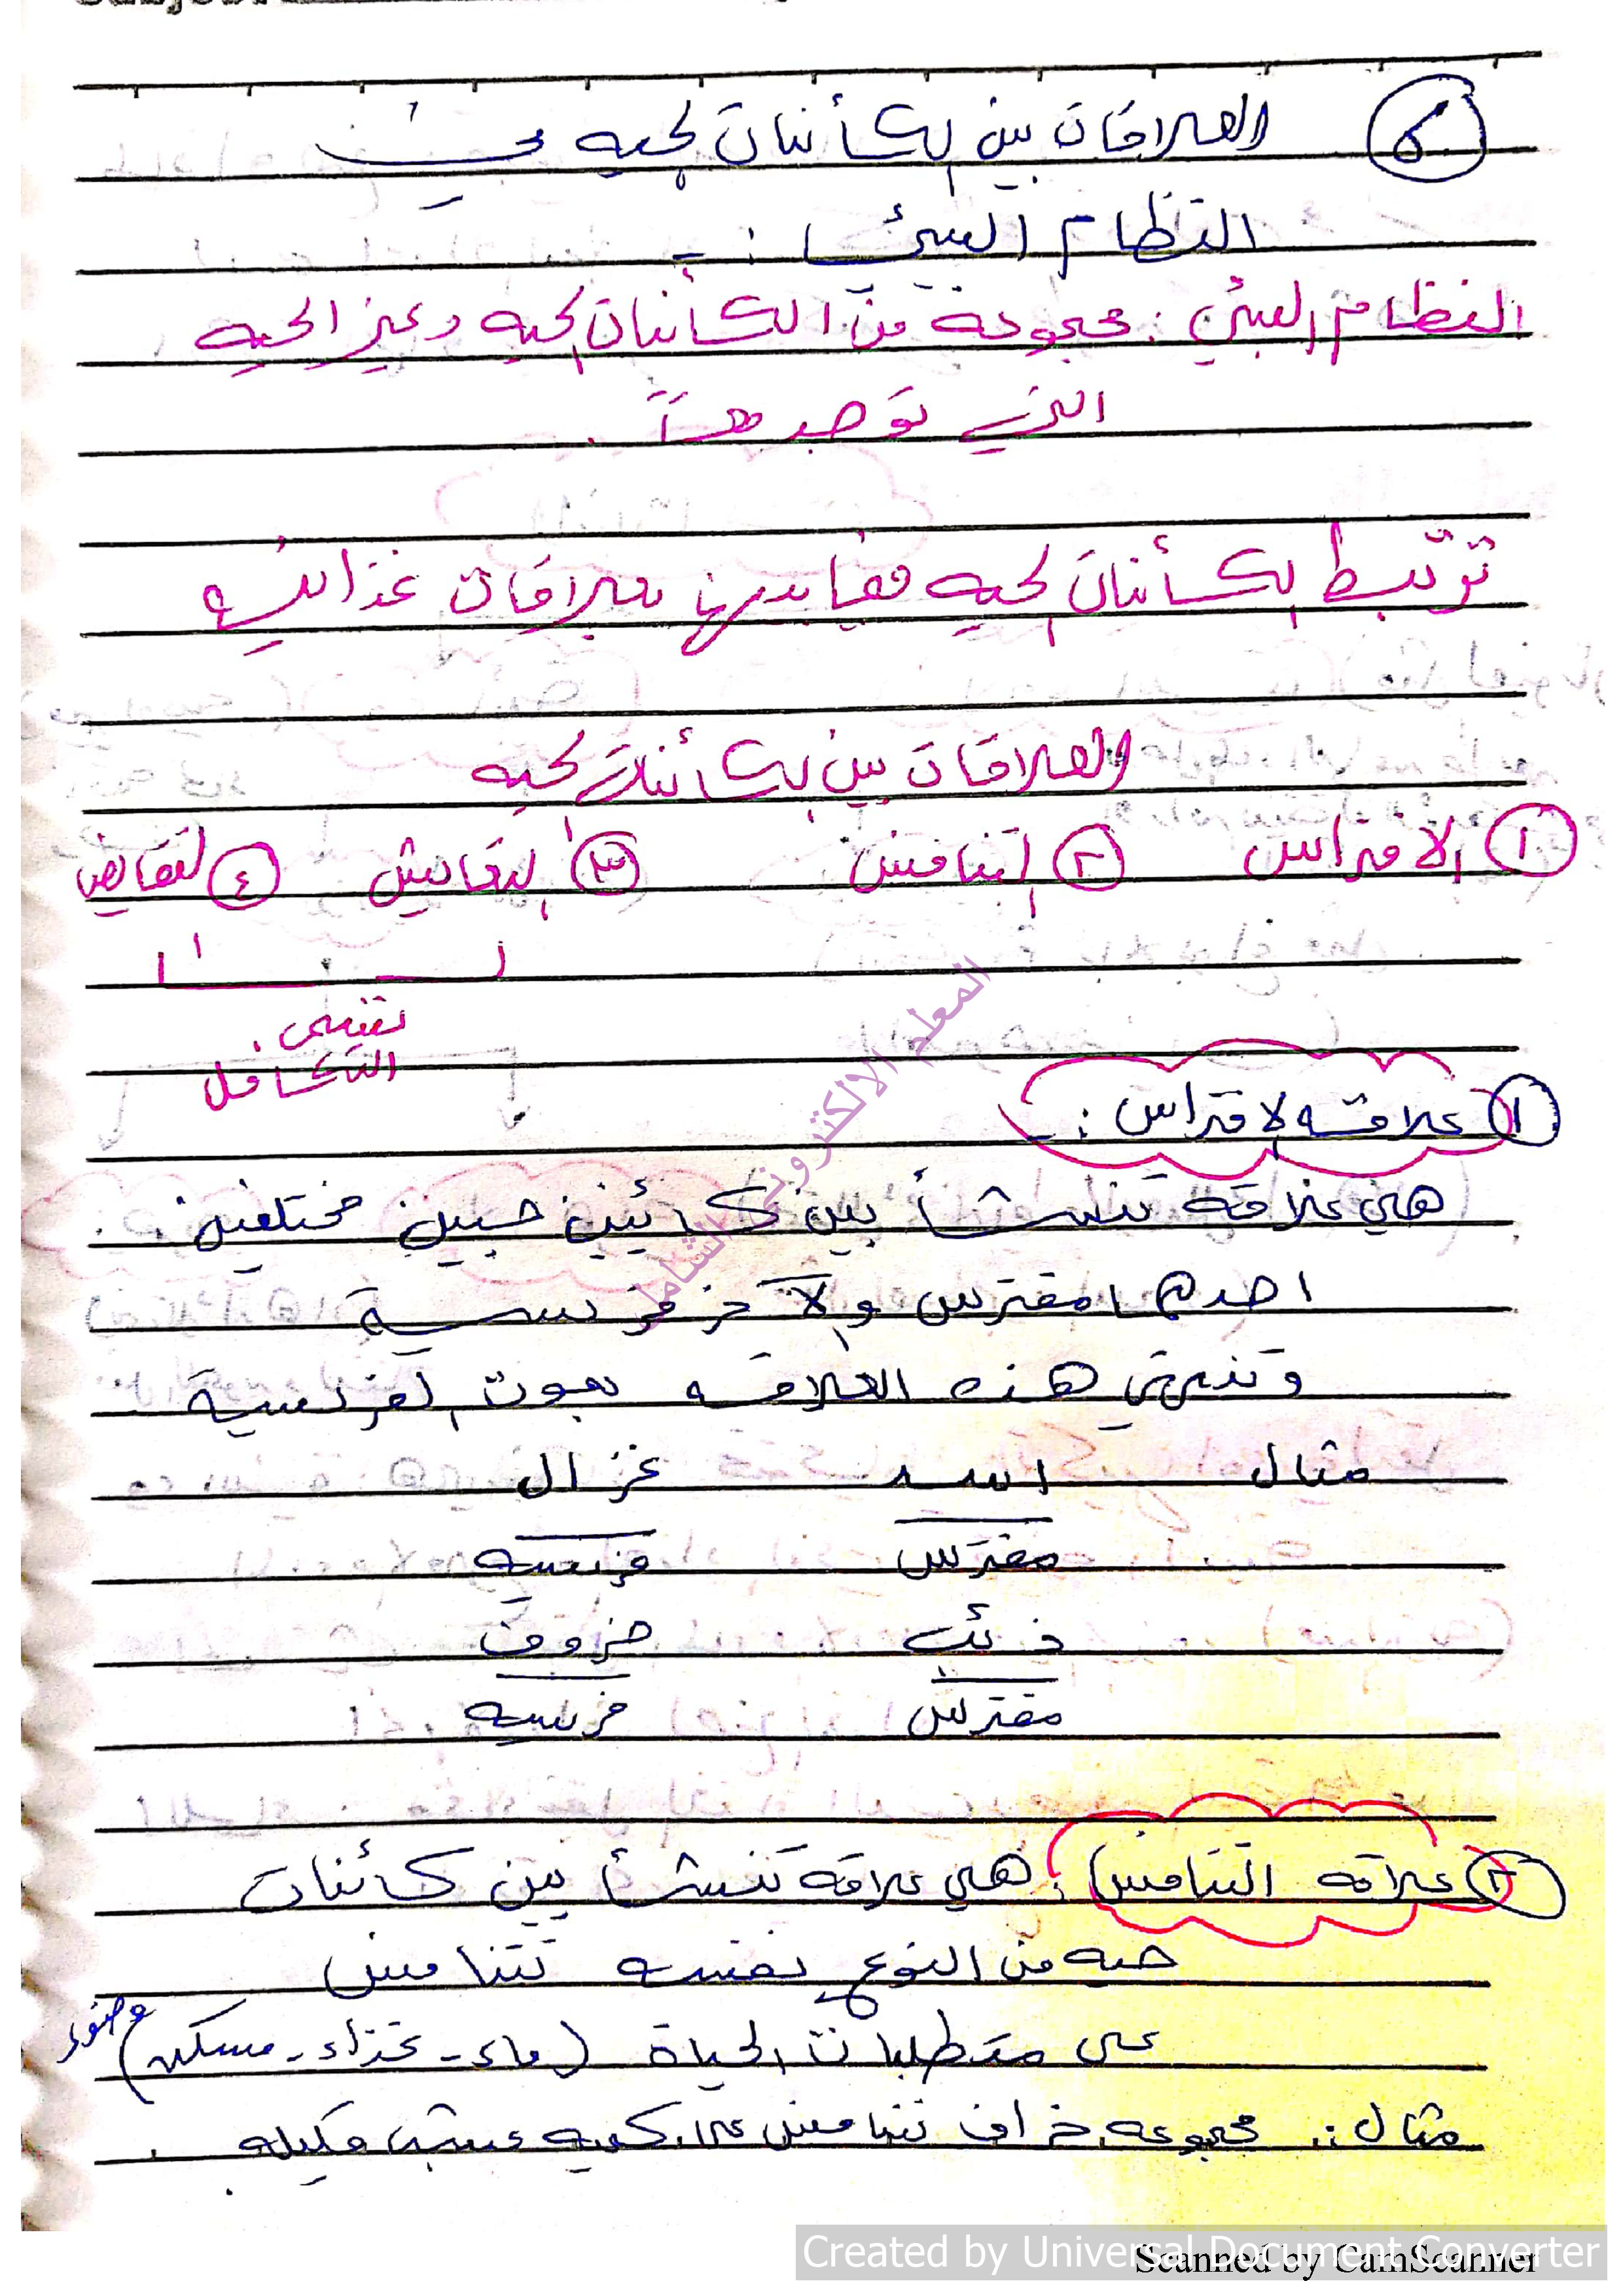 العلاقات بين الكأننات الحيه في
النظام البيئي :-
النظام البيئي : مجموعة من الكأننات الحيه وغير الحيه
التي توجد معاً .
ترتبط الكأننات الحيه فيما بينها بعلاقات غذائيه
العلاقات بين الكأئنات الحيه
١ الافتراس ٢ التنافس ٣ التعايش ٤ التقايض
تسمى
التكافل
١ علاقه الافتراس :-
هي علاقة تنشأ بين كائنين حيين مختلفين .
احدهما مفترس والآخر فريسة
وتنتهي هذه العلاقه بموت الفريسة
مثال اسد غزال
مفترس فريسه
ذئب خروف
مفترس فريسه
٢ علاقه التنافس : هي علاقة تنشأ بين كائنات
حيه من النوع نفسه تتنافس
على متطلبات الحياة (ماء - غذاء - مسكن) وضوء
مثال :. مجموعه خراف تتنافس على كميه عشب قليله .
المعلم الالكتروني الشامل
Created by Universal Document Converter
Scanned by CamScanner